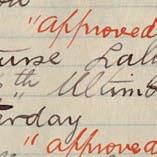 "approved
urse Lal
th Ultim
erday
"approved